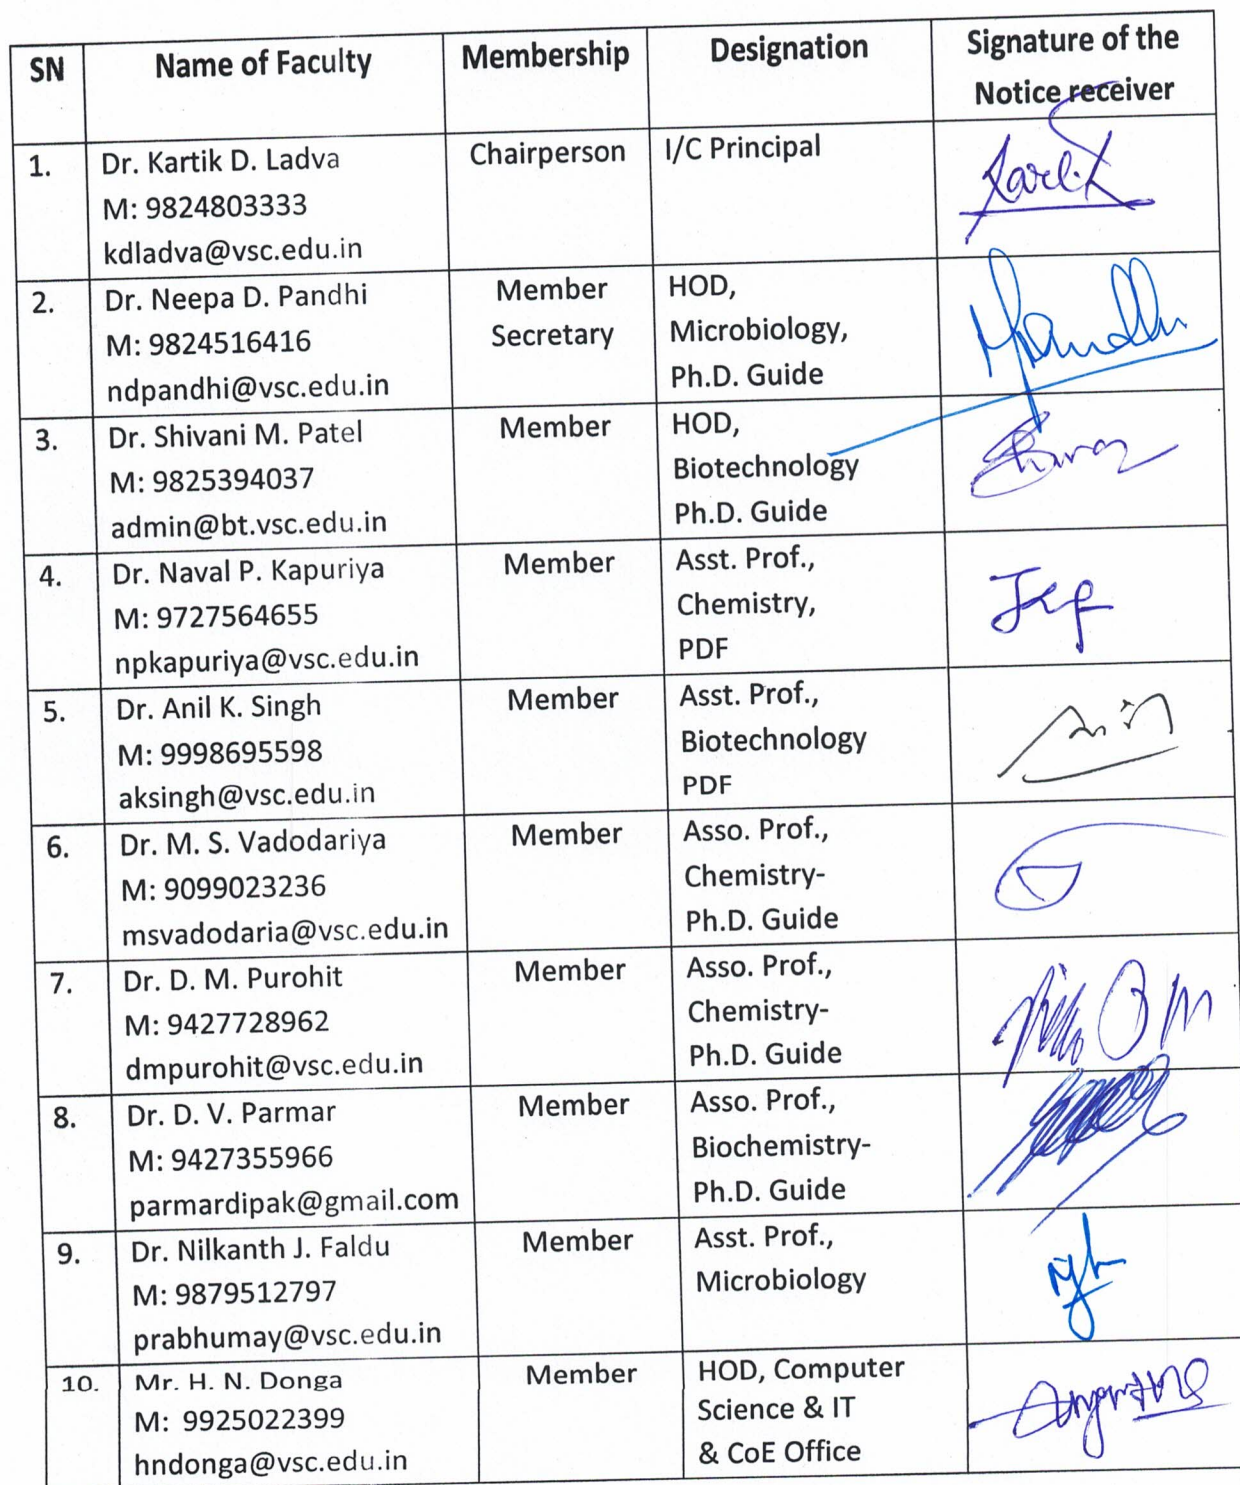 SN
Name of Faculty
Membership
Designation
Signature of the
Notice receiver
1.
Dr. Kartik D. Ladva
M: 9824803333
kdladva@vsc.edu.in
Chairperson
I/C Principal
2.
Dr. Neepa D. Pandhi
M: 9824516416
ndpandhi@vsc.edu.in
Member
Secretary
HOD,
Microbiology,
Ph.D. Guide
3.
Dr. Shivani M. Patel
M: 9825394037
admin@bt.vsc.edu.in
Member
HOD,
Biotechnology
Ph.D. Guide
4.
Dr. Naval P. Kapuriya
M: 9727564655
npkapuriya@vsc.edu.in
Member
Asst. Prof.,
Chemistry,
PDF
5.
Dr. Anil K. Singh
M: 9998695598
aksingh@vsc.edu.in
Member
Asst. Prof.,
Biotechnology
PDF
6.
Dr. M. S. Vadodariya
M: 9099023236
msvadodaria@vsc.edu.in
Member
Asso. Prof.,
Chemistry-
Ph.D. Guide
7.
Dr. D. M. Purohit
M: 9427728962
dmpurohit@vsc.edu.in
Member
Asso. Prof.,
Chemistry-
Ph.D. Guide
8.
Dr. D. V. Parmar
M: 9427355966
parmardipak@gmail.com
Member
Asso. Prof.,
Biochemistry-
Ph.D. Guide
9.
Dr. Nilkanth J. Faldu
M: 9879512797
prabhumay@vsc.edu.in
Member
Asst. Prof.,
Microbiology
10.
Mr. H. N. Donga
M: 9925022399
hndonga@vsc.edu.in
Member
HOD, Computer
Science & IT
& CoE Office